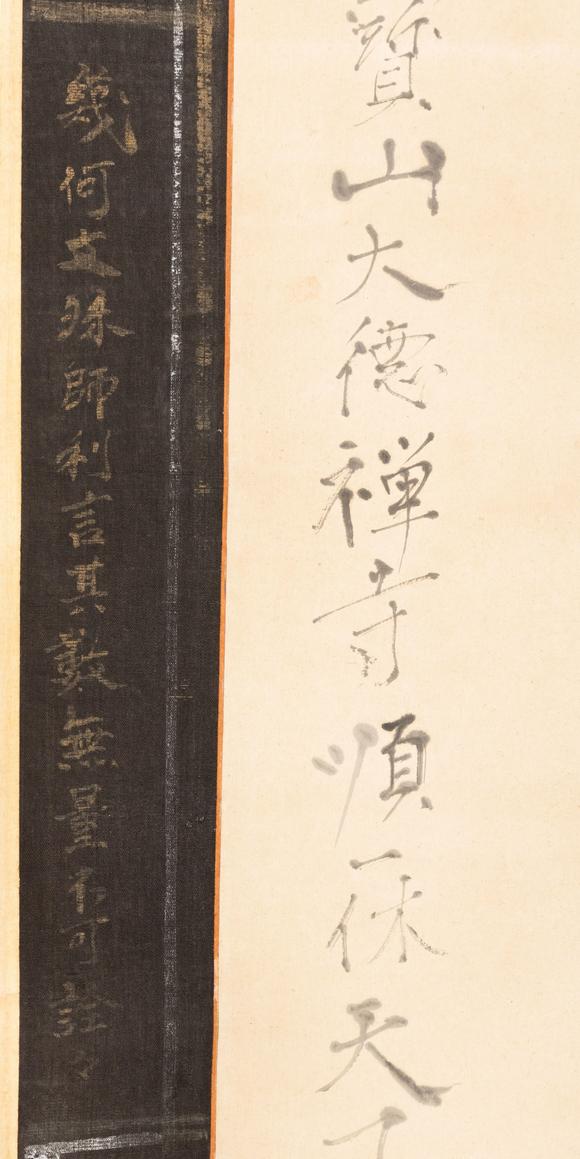 寳山大德禅寺順一休天
幾何文殊師利言其數無量不可